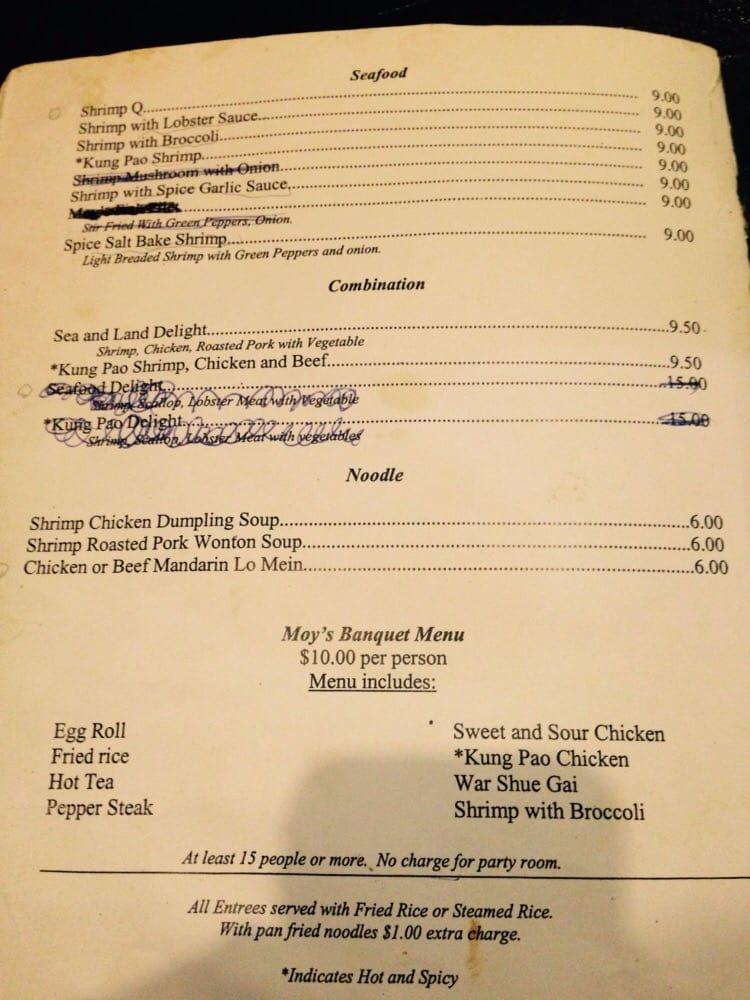 Seafood
Shrimp Q........ 9.00
Shrimp with Lobster Sauce........ 9.00
Shrimp with Broccoli........ 9.00
*Kung Pao Shrimp........ 9.00
Shrimp Mushroom with Onion........ 9.00
Shrimp with Spice Garlic Sauce........ 9.00
........ 9.00
Stir Fried With Green Peppers, Onion.
Spice Salt Bake Shrimp........ 9.00
Light Breaded Shrimp with Green Peppers and onion.
Combination
Sea and Land Delight........9.50
Shrimp, Chicken, Roasted Pork with Vegetable
*Kung Pao Shrimp, Chicken and Beef........9.50
Seafood Delight........15.00
Shrimp, Scallop, Lobster Meat with Vegetable
*Kung Pao Delight........15.00
Shrimp, Scallop, Lobster Meat with vegetables
Noodle
Shrimp Chicken Dumpling Soup........6.00
Shrimp Roasted Pork Wonton Soup........6.00
Chicken or Beef Mandarin Lo Mein........6.00
Moy's Banquet Menu
$10.00 per person
Menu includes:
Egg Roll
Fried rice
Hot Tea
Pepper Steak
Sweet and Sour Chicken
*Kung Pao Chicken
War Shue Gai
Shrimp with Broccoli
At least 15 people or more. No charge for party room.
All Entrees served with Fried Rice or Steamed Rice.
With pan fried noodles $1.00 extra charge.
*Indicates Hot and Spicy